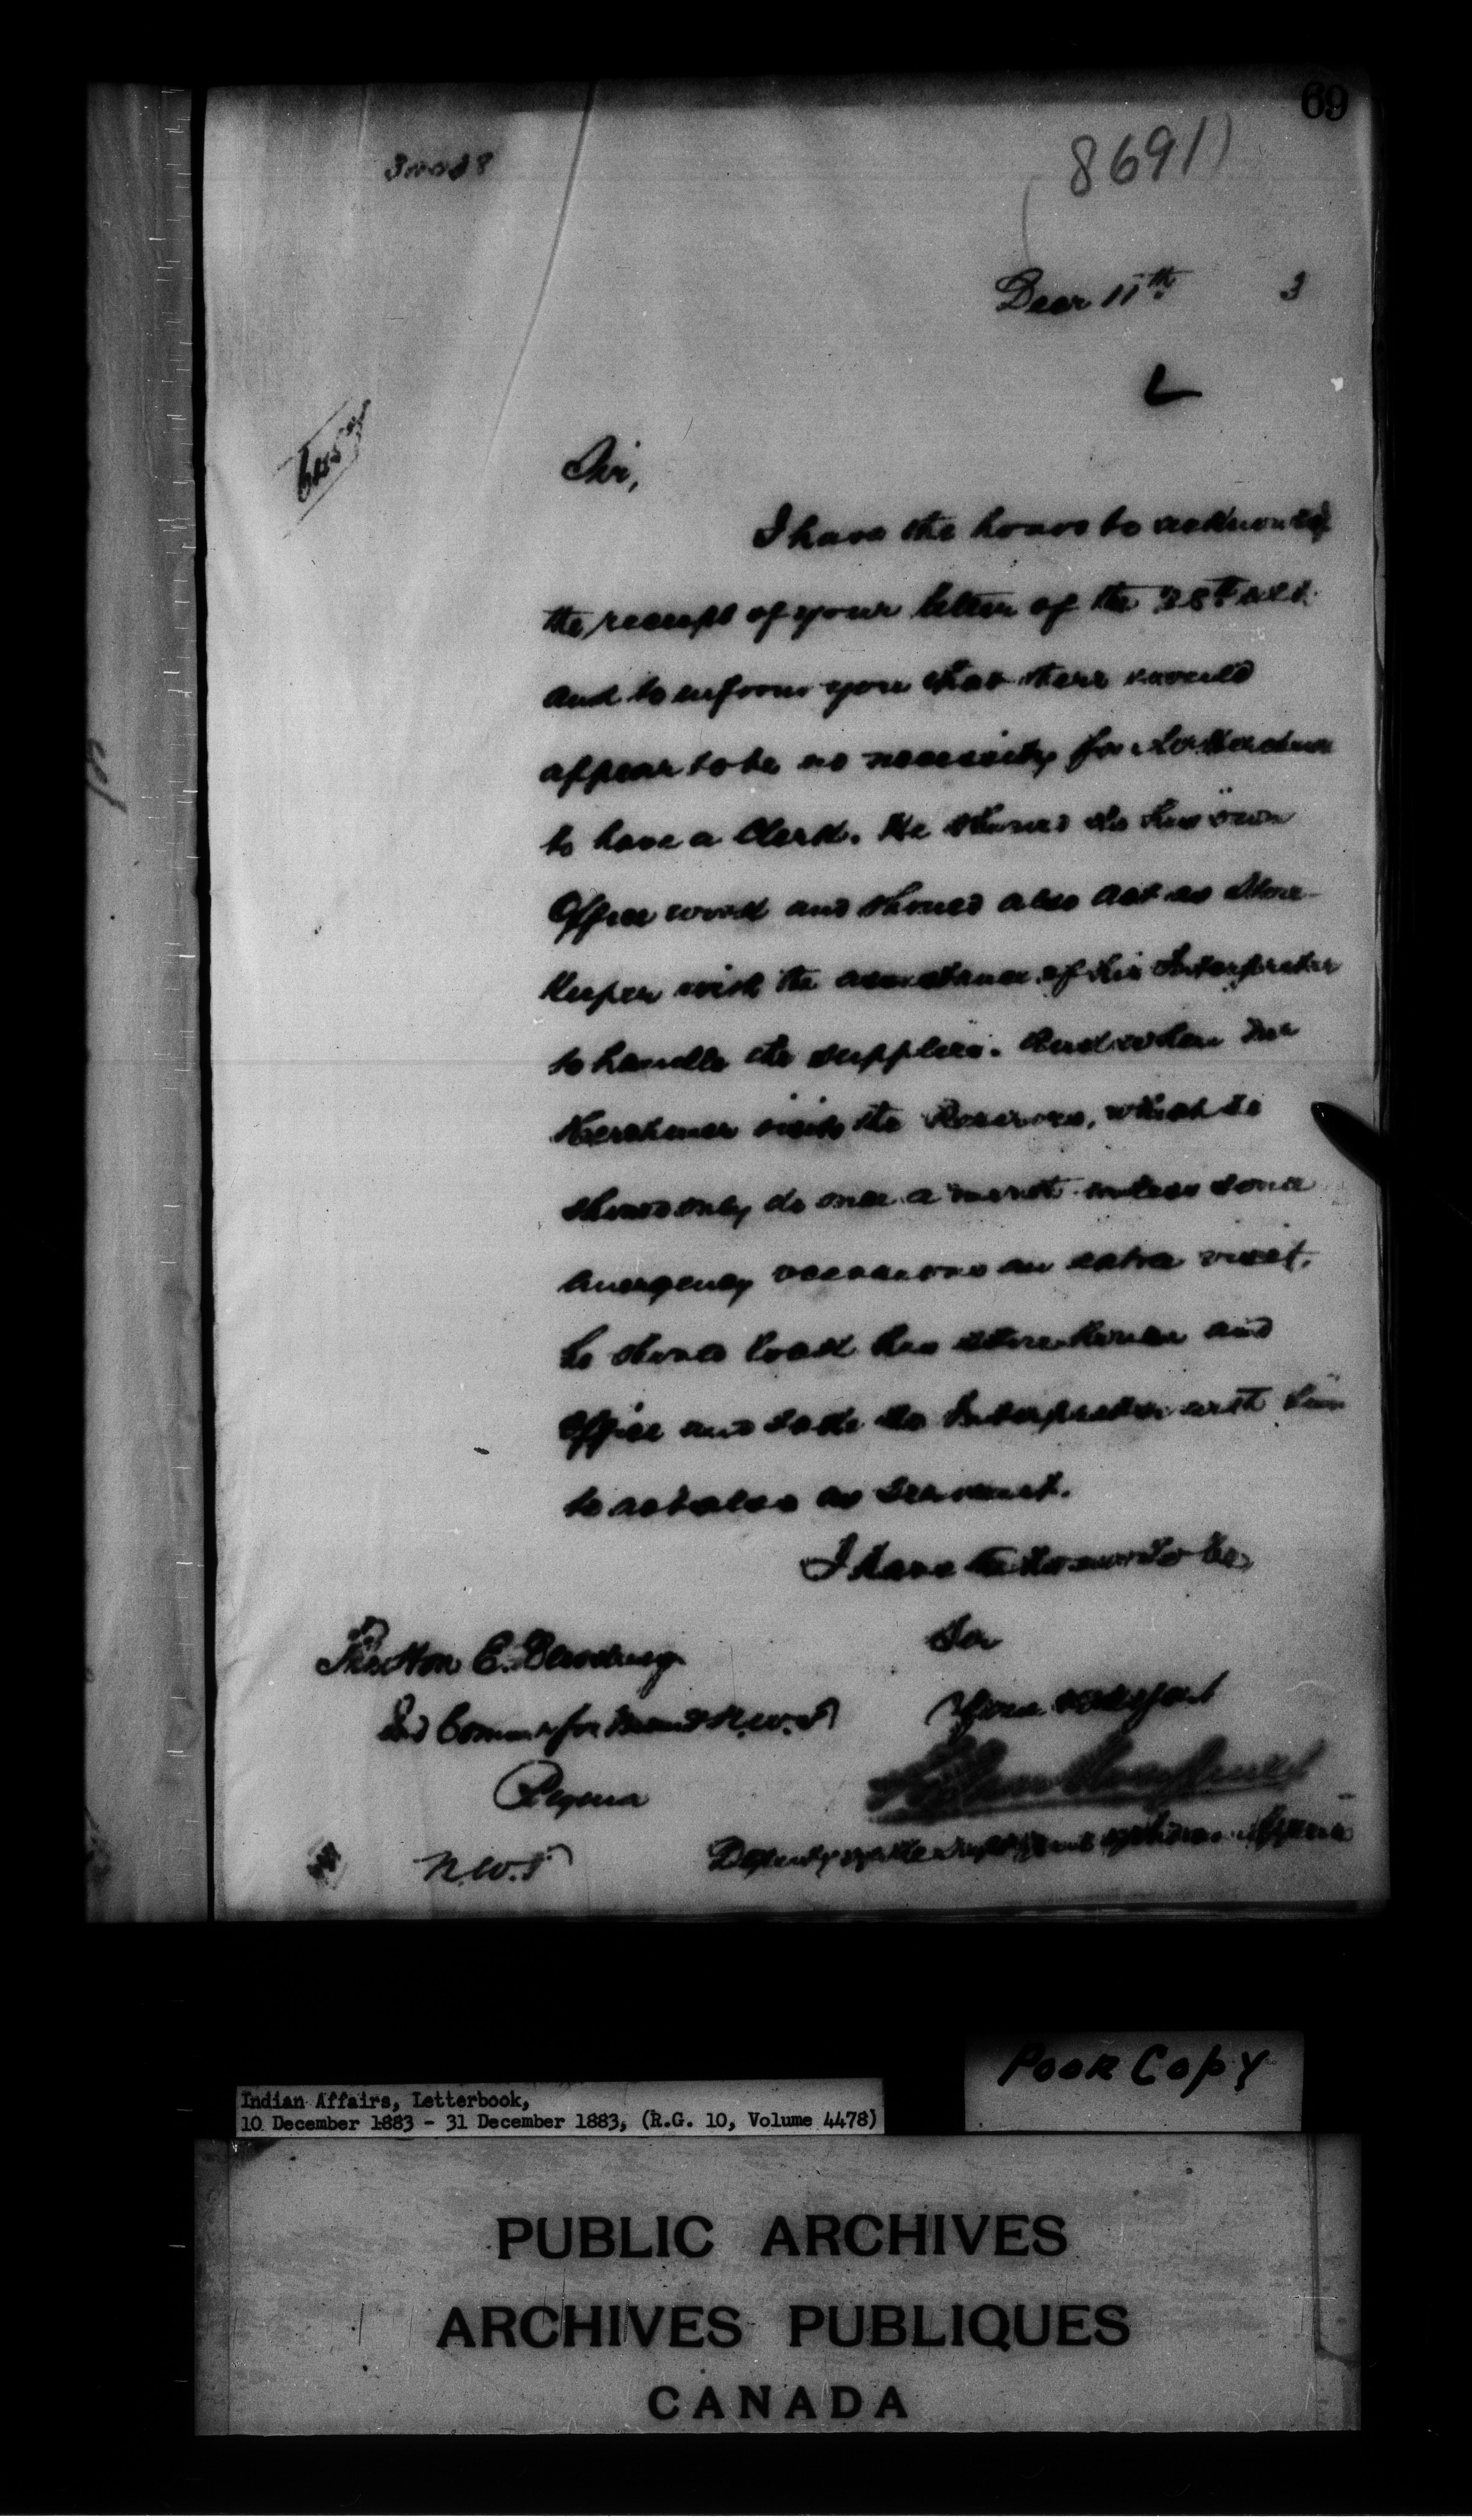 69
8691)
Decr 11th 3
L
Sir,
I have the honor to acknowledge
the receipt of your letter of the 28th ult.
and to inform you that there would
appear to be no necessity for Mr Herchmer
to have a Clerk. He should do his own
Office work and should also act as Store-
keeper with the assistance of his Interpreter
to handle the supplies. And when Mr
Herchmer visits the Reserves, which he
should only do once a month unless some
emergency occasions an extra visit,
he should lock his store-house and
Office and take the Interpreter with him
to act also as Servant.
I have the honor to be,
Sir
The Hon E. Dewdney
Your obdt Servt
Ind Commr for Man & N.W.T
Regina
N.W.T
Deputy of the Supt Genl of Indian Affairs
Poor Copy
Indian Affairs, Letterbook,
10 December 1883 - 31 December 1883, (R.G. 10, Volume 4478)
PUBLIC ARCHIVES
ARCHIVES PUBLIQUES
CANADA